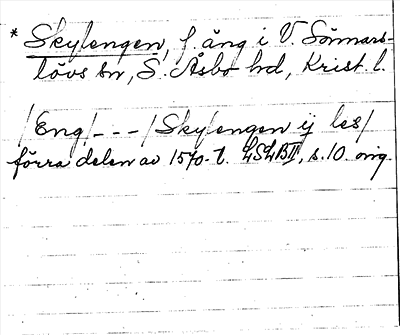 * Skylengen, f. äng i V. Sönnars-
lövs sn, S. Åsbo hd, Krist. l.
/Eng/ - - - /Skylengen ij les/
förra delen av 1570-t. LSLBII, s. 10. orig.